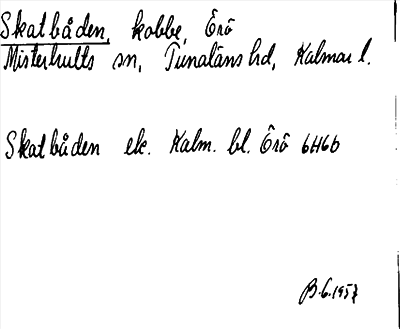 Skatbåden, kobbe, Örö
Misterhults sn, Tunaläns hd, Kalmar l.
Skatbåden ek. Kalm. bl. Örö 6H6b
B.G.1957